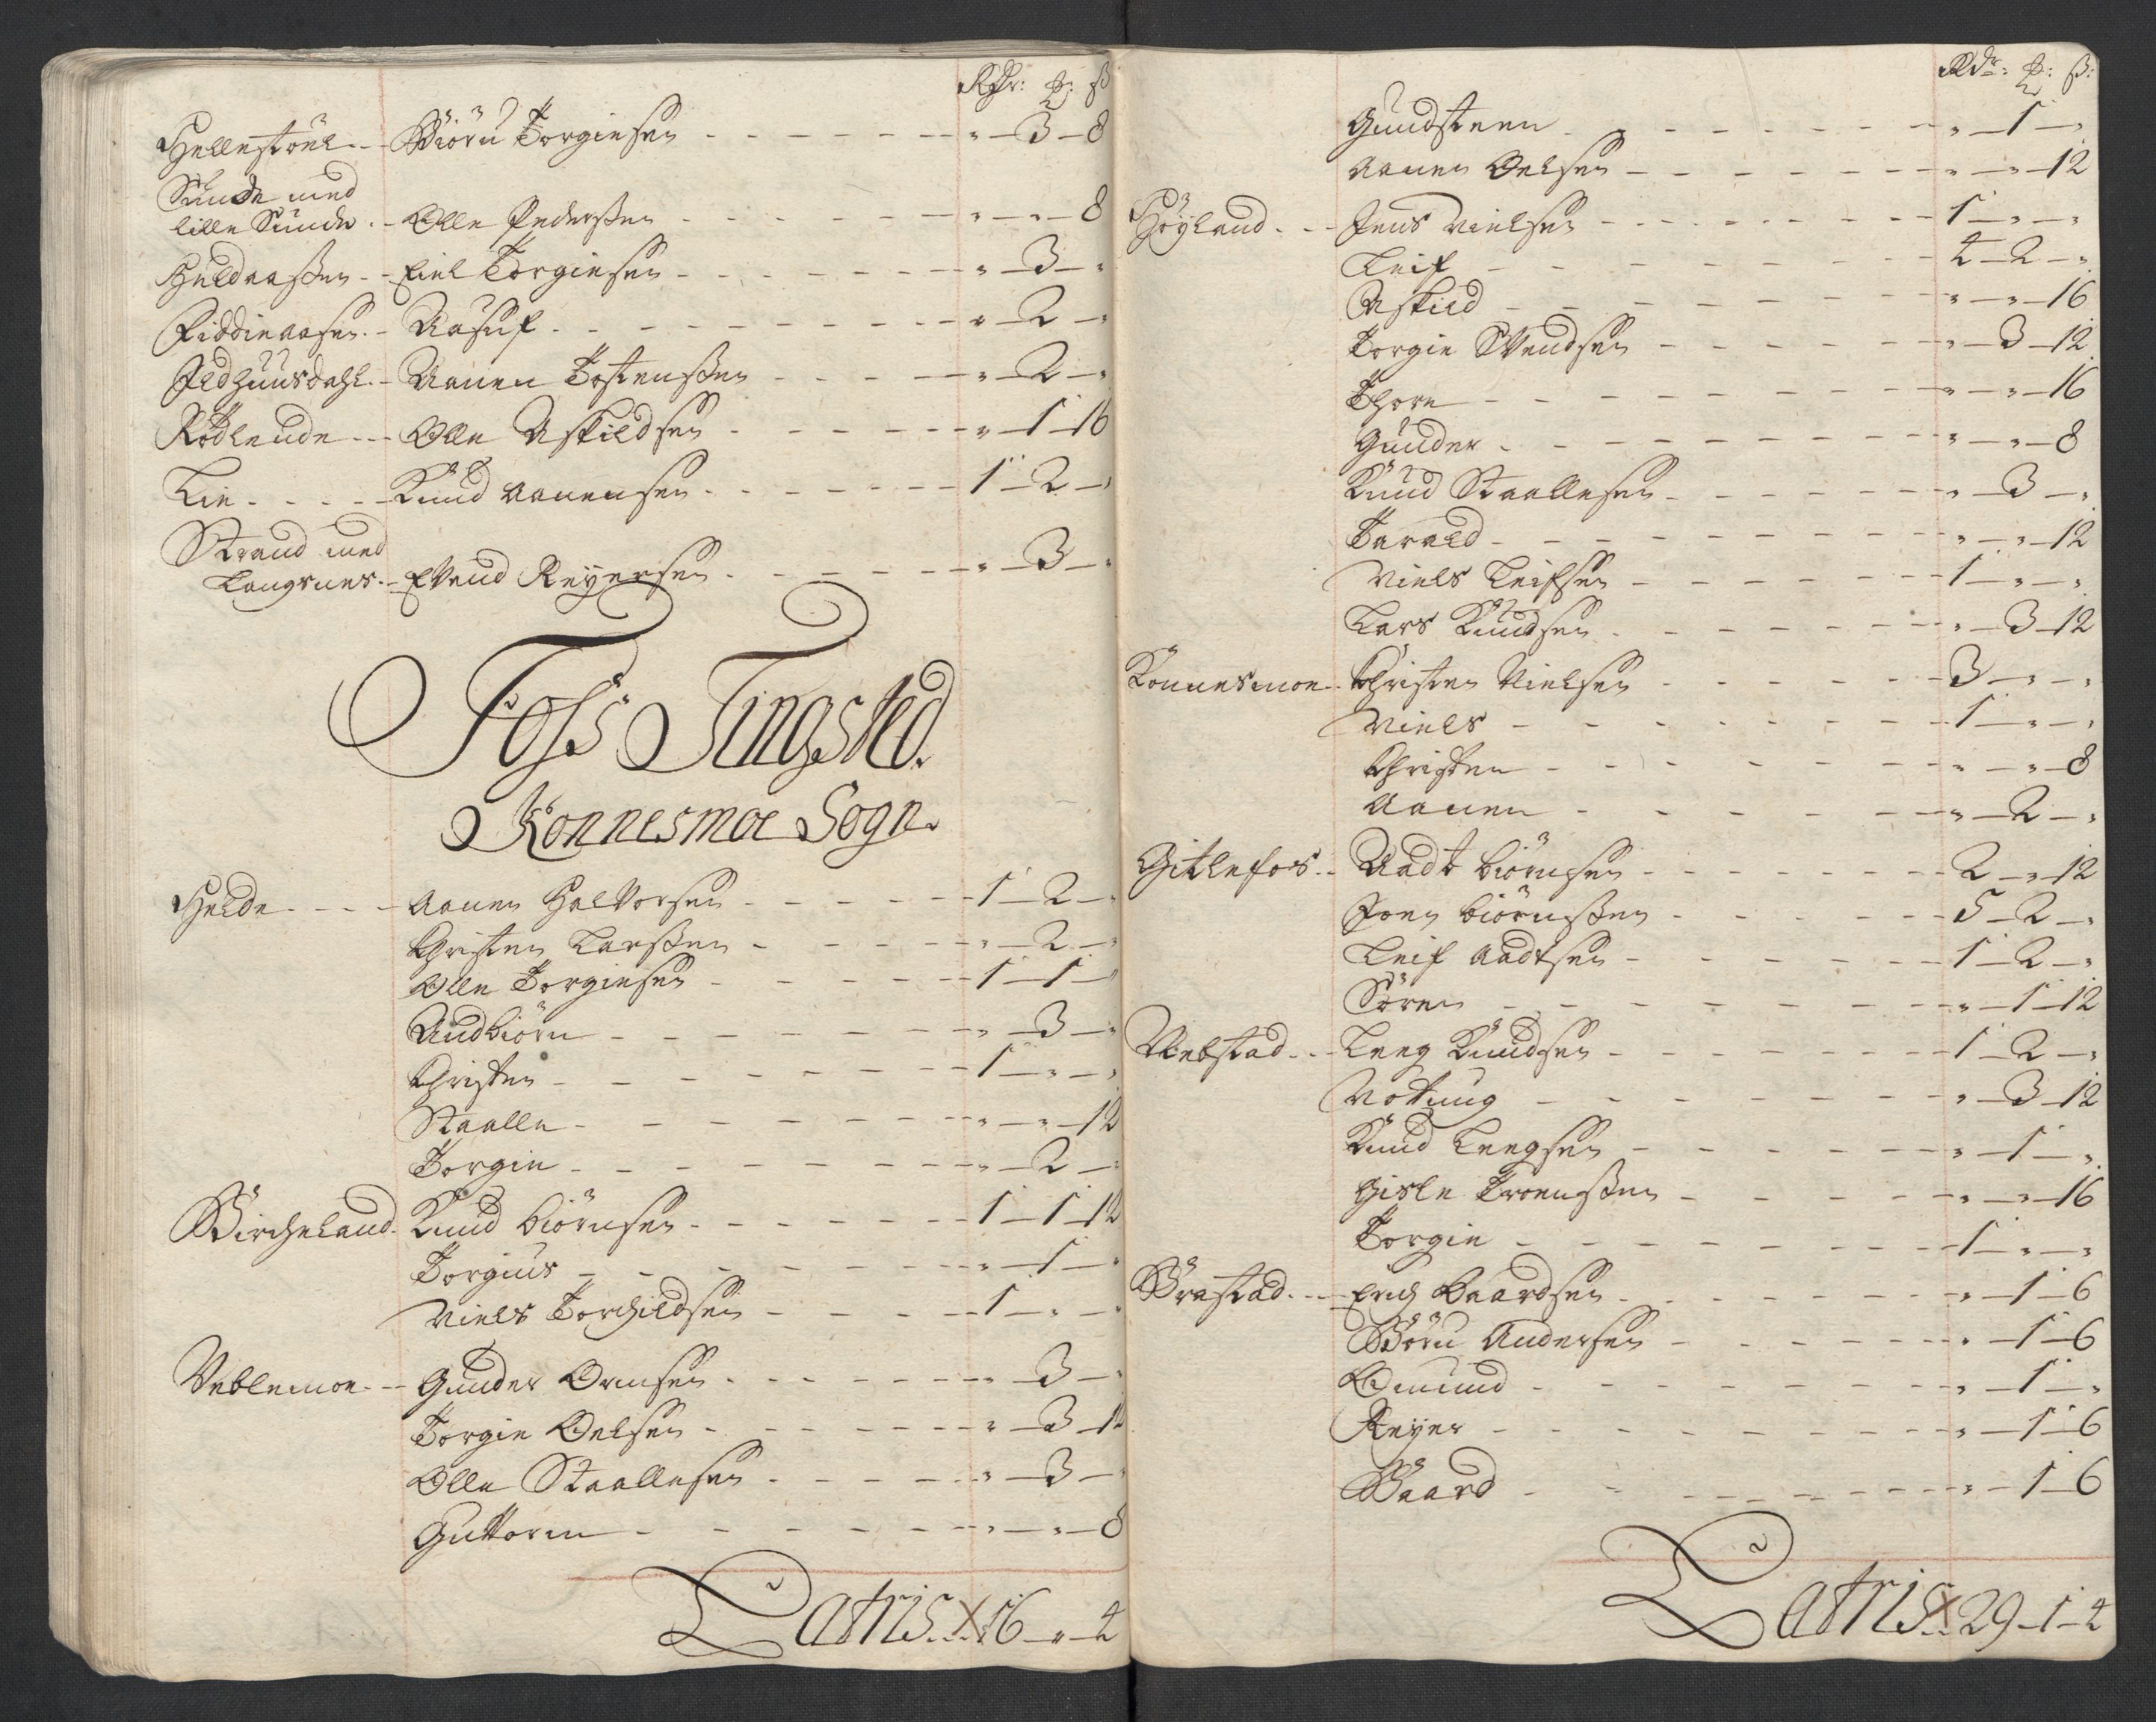 Rdr: ƒ: ß
Hellestöel - - Biörn Torgiesen - - - „ - 3 - 8
Sunde med
lille Sunde - - Olle Pederßen - - - „ - „ - 8
Huldraaßen - - Eiel Torgiesen - - - „ - 3 - „
Fiddieaasen - - Aasuf - - - „ - 2 - „
Ildhuusdahl - - Aanen Tostenßen - - - „ - 2 - „
Rödlende - - Olle Askildsen - - - „ - 1 - 16
Lie - - - Knud Aanensen - - - 1 - 2 - „
Strand med
Langenes - - EVend Reyersen - - - „ - 3 - „
Foss Tingsted.
Konnesmoe Sogn.
Helde - - - Aanen HalVorsen - - - 1 - 2 - „
Christen Larßen - - - „ - 2 - „
Olle Torgiesen - - - 1 - 1 - „
Audbiörn - - - „ - 3 - „
Christen - - - 1 - „ - „
Staalle - - - „ - „ - 12
Torgie - - - „ - 2 - „
Bircheland - Knud Biörnsen - - - 1 - 1 - 12
Torgius - - - „ - 1 - „
Niels Torchildsen - - - 1 - „ - „
Veblemoe - - Gunder Ormsen - - - „ - 3 - „
Torgie Oelsen - - - „ - 3 - 12
Olle Staallesen - - - „ - 3 - „
Guttorm - - - „ - „ - 8
Latris - - - 16 - „ - 4
Rdr: ƒ: ß:
Gundsteen - - - „ - 1 - „
Aanen Oelsen - - - „ - „ - 12
Höyland - - Jens Nielsen - - - 1 - „ - „
Leif - - - 4 - 2 - „
Askild - - - „ - „ - 16
Torgie SVendsen - - - „ - 3 - 12
Thore - - - „ - „ - 16
Gunder - - - „ - „ - 8
Knud Staallesen - - - „ - 3 - „
Tarald - - - „ - „ - 12
Niels Leifsen - - - 1 - „ - „
Lars Knudsen - - - „ - 3 - 12
Konnesmoe - - Christen Nielsen - - - 3 - „ - „
Niels - - - 1 - „ - „
Christen - - - „ - „ - 8
Aanen - - - „ - 2 - „
Gitlefos - - Aadt Biörnsen - - - 2 - „ - 12
Joen Biörnßen - - - 5 - 2 - „
Leif Aadtsen - - - 1 - 2 - „
Sören - - - „ - 1 - 12
Nebstad - - Leeg Knudsen - - - 1 - 2 - „
Nottung - - - „ - 3 - 12
Knud Leegsen - - - „ - 1 - „
Gisle Troengßen - - - „ - „ - 16
Torgie - - - 1 - „ - „
Brastad - - Erich Baardsen - - - „ - 1 - 6
Börn Andersen - - - „ - 1 - 6
Omund - - - „ - 1 - „
Reyer - - - „ - 1 - 6
Baard - - - „ - 1 - 6
Latris - - 29 - 1 - 4